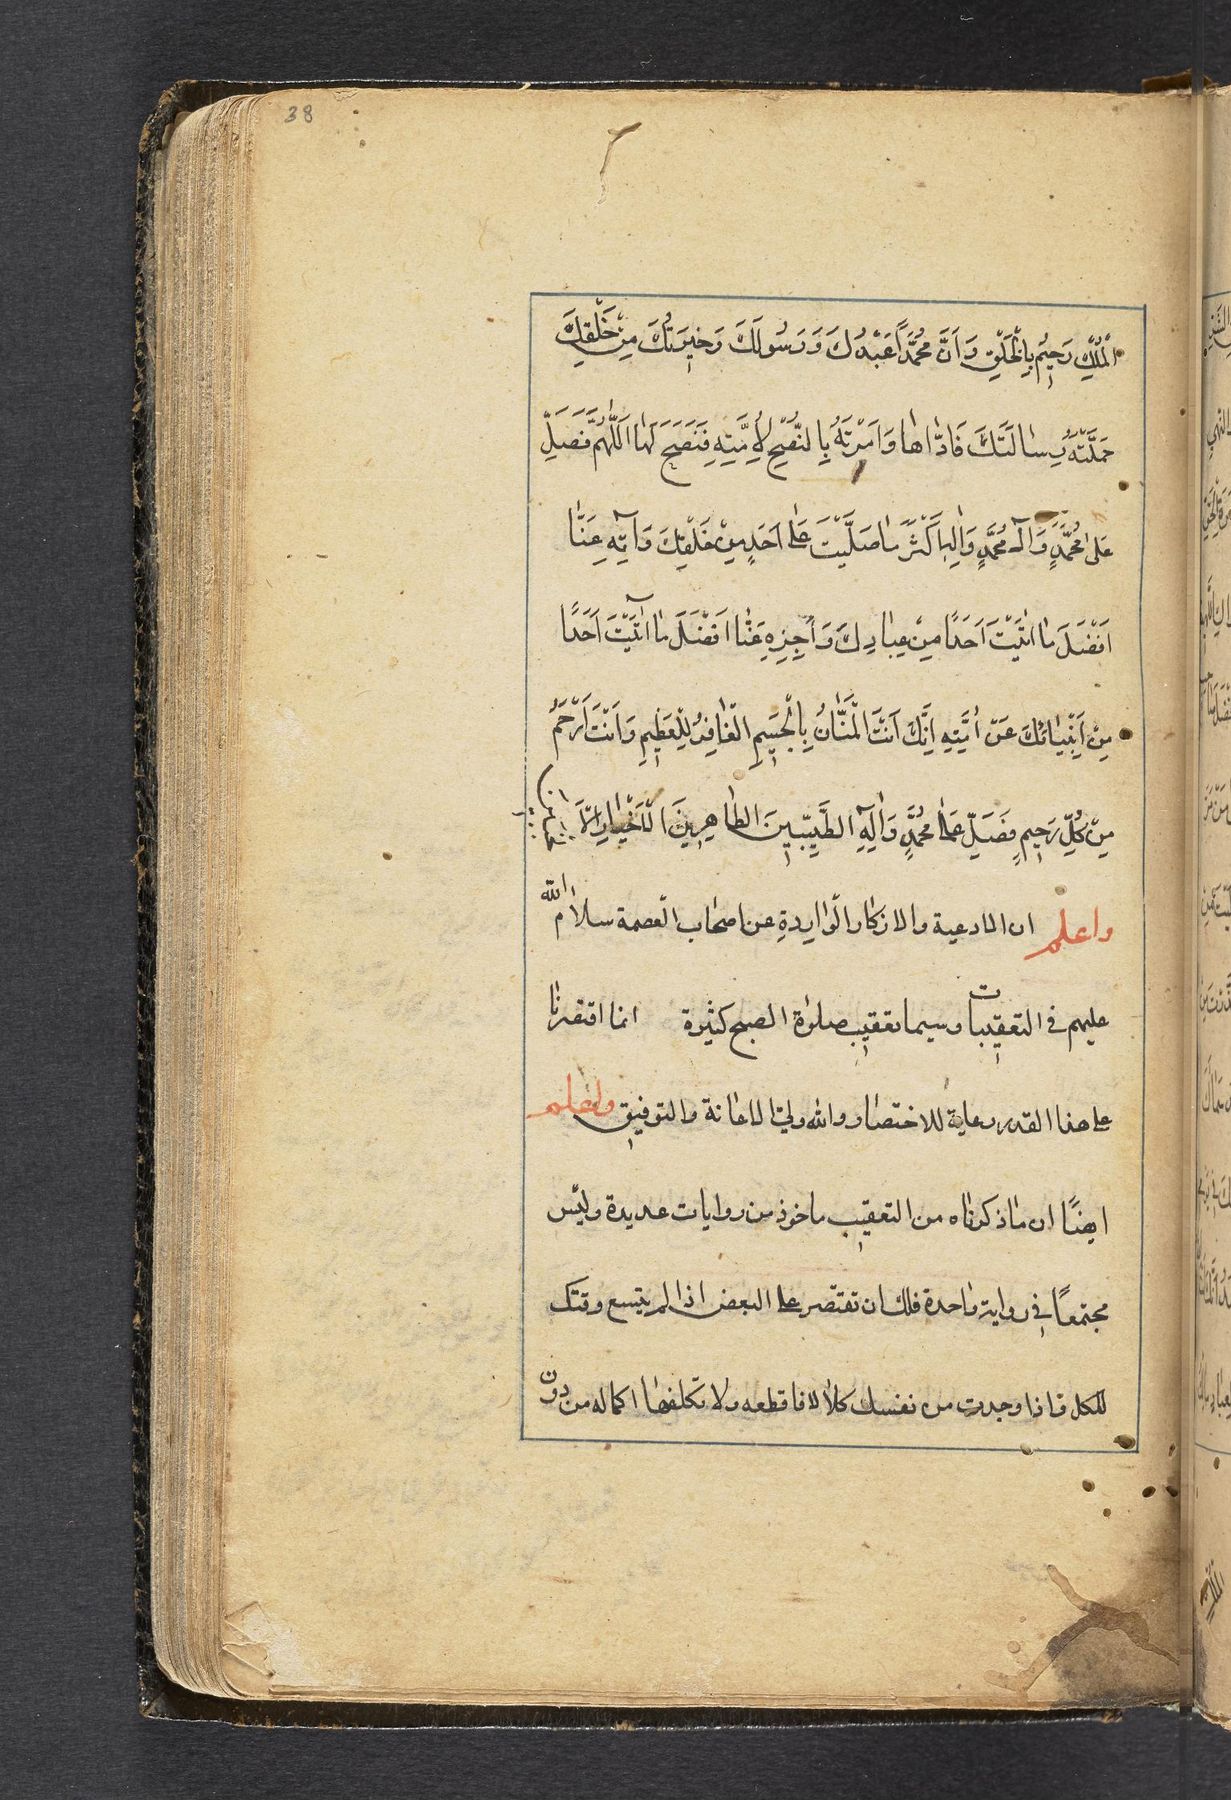 38
الْمُلْكِ رَحِيمٌ بِالْخَلْقِ وَاَنَّ مُحَمَّدًا عَبْدُكَ وَرَسُولُكَ وَخِيَرَتُكَ مِنْ خَلْقِكَ
حَمَّلْتَهُ رِسٰالَتَكَ فَاَدّٰاهٰا وَاَمَرْتَهُ بِالنُّصْحِ لِاُمَّتِهِ فَنَصَحَ لَهٰا اَللّٰهُمَّ فَصَلِّ
عَلىٰ مُحَمَّدٍ وَآلِ مُحَمَّدٍ اَكْثَرَ مٰا صَلَّيْتَ عَلىٰ اَحَدٍ مِنْ خَلْقِكَ وَآتِهِ عَنّٰا
اَفْضَلَ مٰا اٰتَيْتَ اَحَدًا مِنْ عِبٰادِكَ وَاَجْزِهِ عَنّٰا اَفْضَلَ مٰا اٰتَيْتَ اَحَدًا
مِنْ اَنْبِيٰائِكَ عَنْ اُمَّتِهِ اِنَّكَ اَنْتَ الْمَنّٰانُ بِالْجَسِيمِ الْغٰافِرُ لِلْعَظِيمِ وَاَنْتَ اَرْحَمُ
مِنْ كُلِّ رَحِيمٍ فَصَلِّ عَلىٰ مُحَمَّدٍ وَاٰلِهِ الطَّيِّبِينَ الطّٰاهِرِينَ الْاَخْيٰارِ
واعلم ان الادعية والاذكار الواردة عن اصحاب العصمة سلام الله
عليهم فى التعقيبات وسيما تعقيب صلوة الصبح كثيرة انما اقتصرنا
على هذا القدر رعاية للاختصار والله ولي الاعانة والتوفيق واعلم
ايضًا ان ما ذكرناه من التعقيب ماخوذ من روايات عديدة وليس
مجتمعًا في رواية واحدة فلك ان تقتصر على البعض اذا لم يتسع وقتك
للكل فاذا وجدت من نفسك كلالا فاقطعه ولا تكلفها اكماله من دون